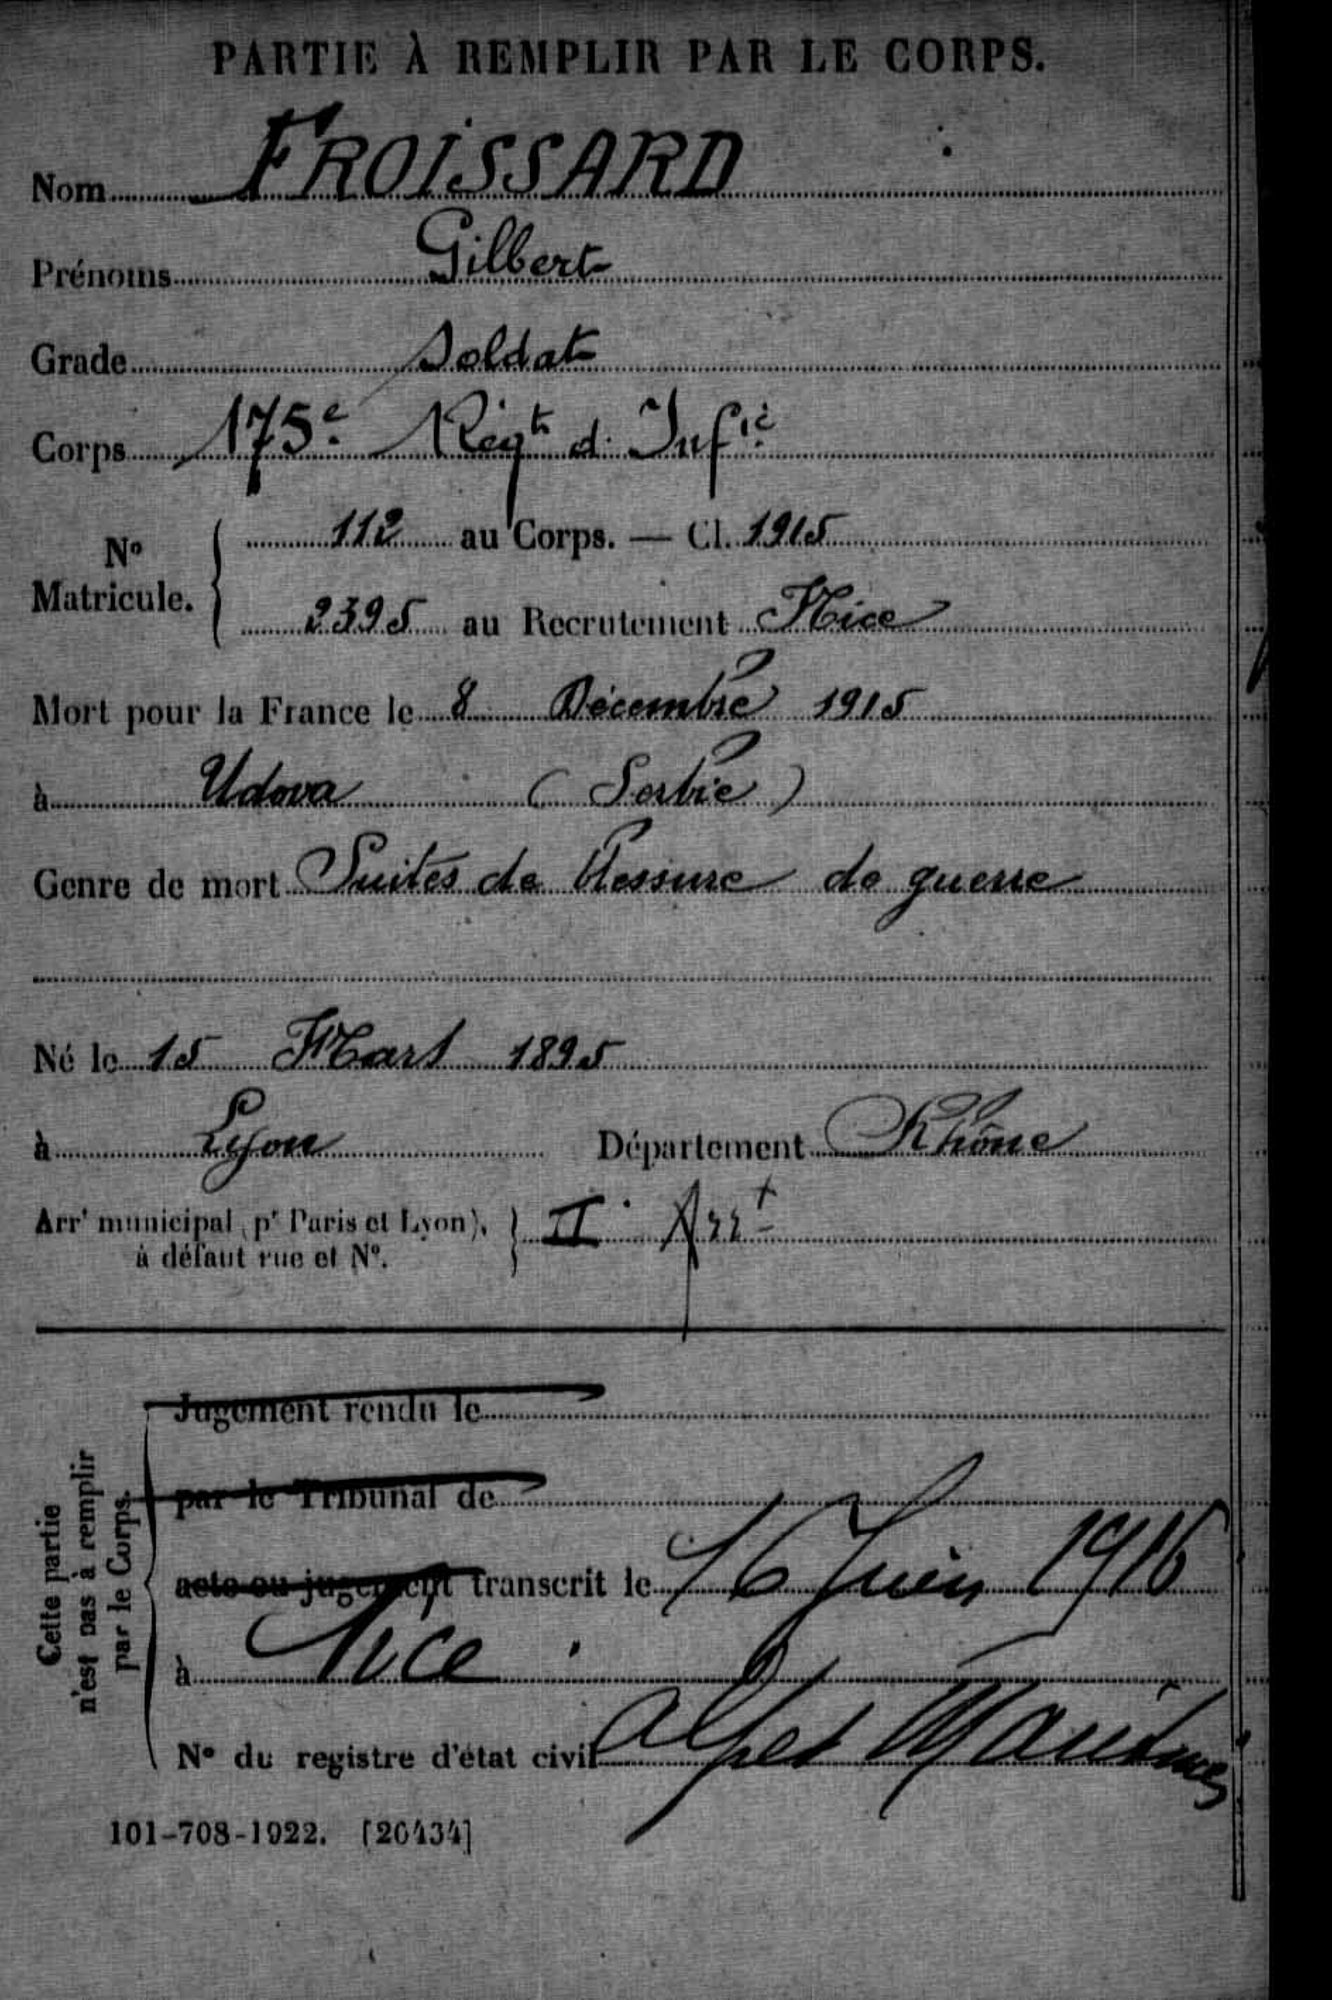 PARTIE À REMPLIR PAR LE CORPS.
Nom FROISSARD
Prénoms Gilbert
Grade Soldat
Corps 175e Régt d' Infie
No Matricule. 112 au Corps. — Cl. 1915
2395 au Recrutement Nice
Mort pour la France le 8 Décembre 1915
à Udova (Serbie)
Genre de mort Suites de blessure de guerre
Né le 15 Mars 1895
à Lyon Département Rhône
Arrt municipal (pr Paris et Lyon), à défaut rue et No. II. Arrt
Cette partie n'est pas à remplir par le Corps.
Jugement rendu le
par le Tribunal de
acte ou jugement transcrit le 16 Juin 1916
à Nice
No du registre d'état civil Alpes Maritimes
101-708-1922. [26434]